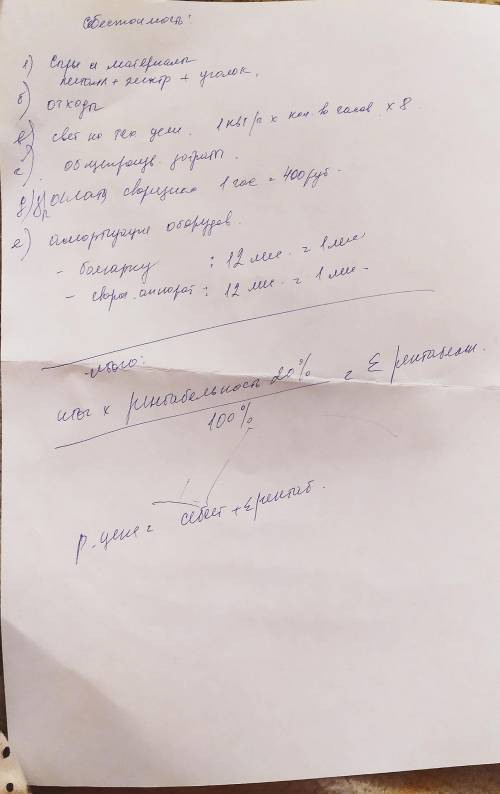 Себестоимость:
1) Сырье и материалы
металл + электр + уголок.
б) отходы
в) свет на тех цели. 1 квт/ч х кол. во часов х 8
г) общепроизв. затраты.
д) оплата сварщика 1 час = 400 руб.
е) амортизация оборудов.
- болгарку : 12 мес. = 1 мес
- свароч. аппарат : 12 мес. = 1 мес.
итого:
итог х рентабельность 20% = Σ рентабельн.
100%
р. цена = себест + Σ рентаб.